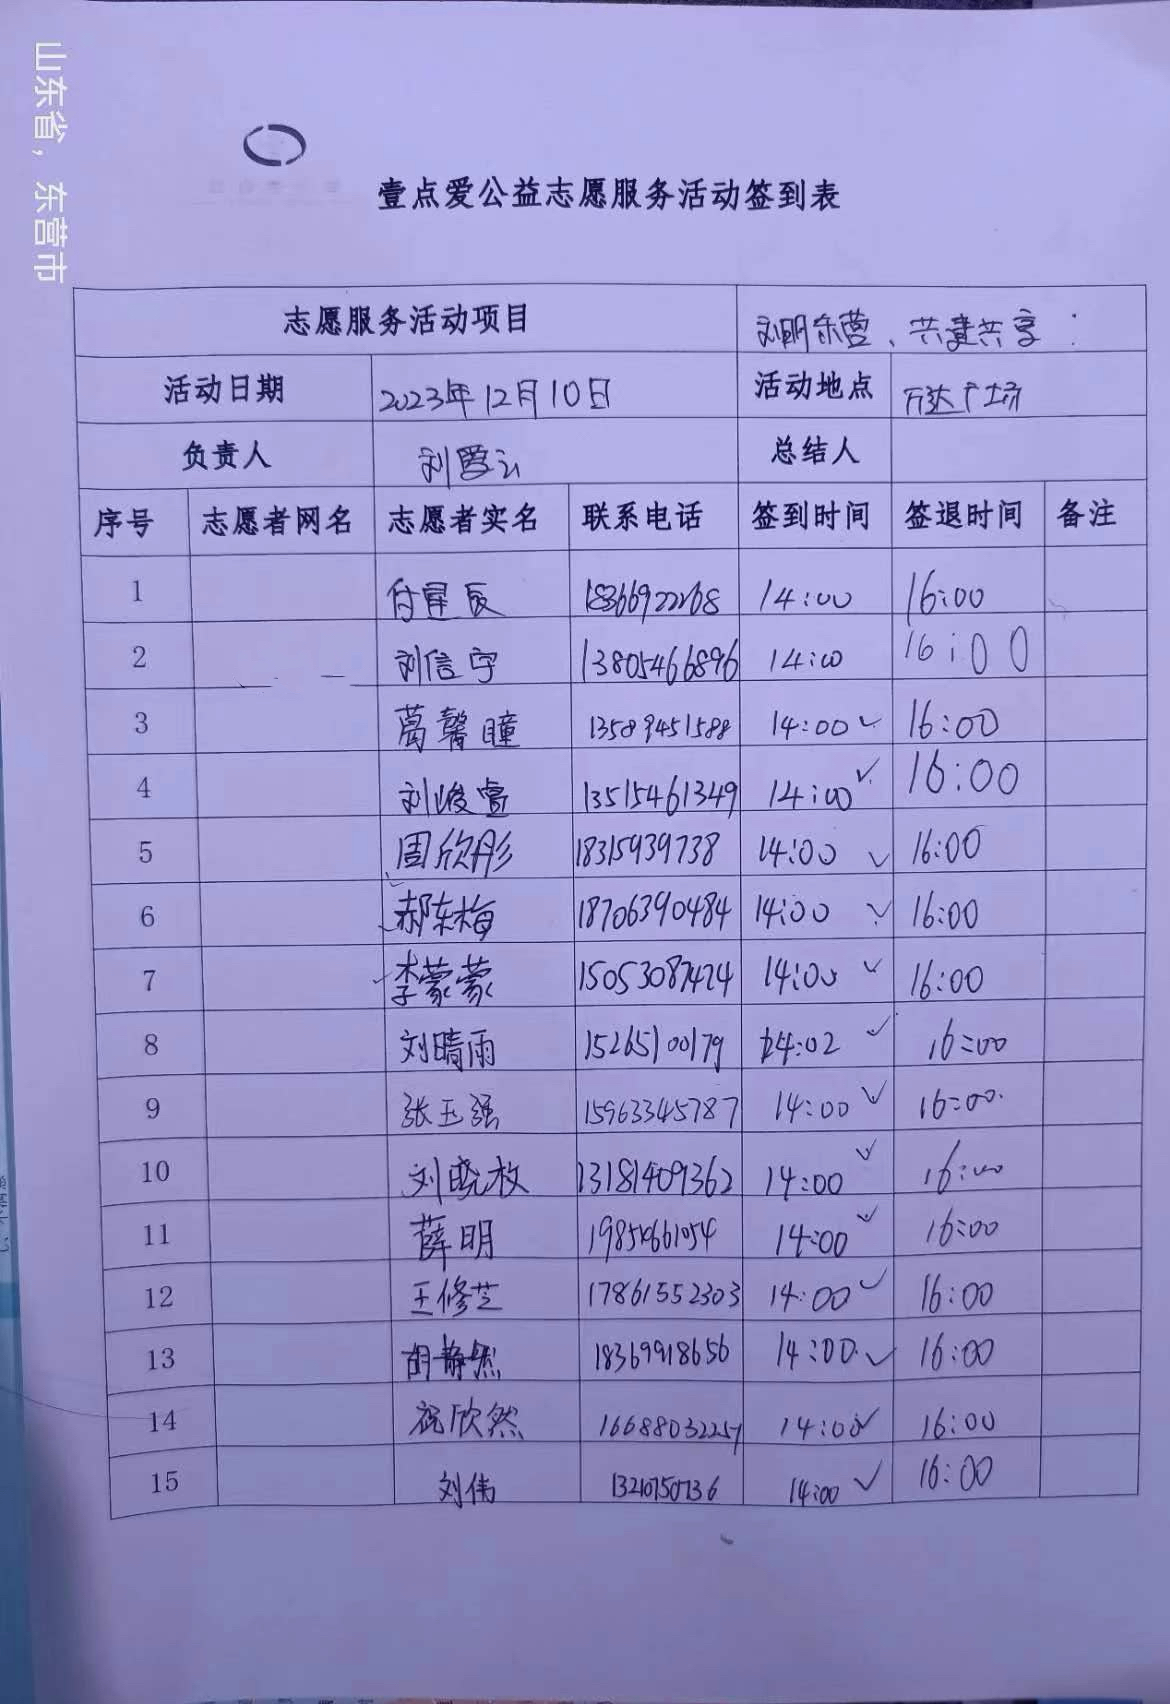 山东省，东营市
壹点爱公益志愿服务活动签到表
志愿服务活动项目 东营、共建共享
活动日期 2023年12月10日 活动地点 万达广场
负责人 刘霞云 总结人
序号 志愿者网名 志愿者实名 联系电话 签到时间 签退时间 备注
1 付星辰 14:00 16:00
2 刘信宇 13805466896 14:00 16:00
3 葛馨瞳 13589451588 14:00 16:00
4 刘峻睿 13515461349 14:00 16:00
5 周欣彤 18315939738 14:00 16:00
6 郝东梅 18706390484 14:00 16:00
7 李蒙蒙 15053087474 14:00 16:00
8 刘晴雨 15265100179 14:02 16:00
9 张玉强 15963345787 14:00 16:00
10 刘晓枚 13181409362 14:00 16:00
11 薛明 14:00 16:00
12 王修芝 17861552303 14:00 16:00
13 胡静然 18369918656 14:00 16:00
14 祝欣然 16688032257 14:00 16:00
15 刘伟 13210750736 14:00 16:00